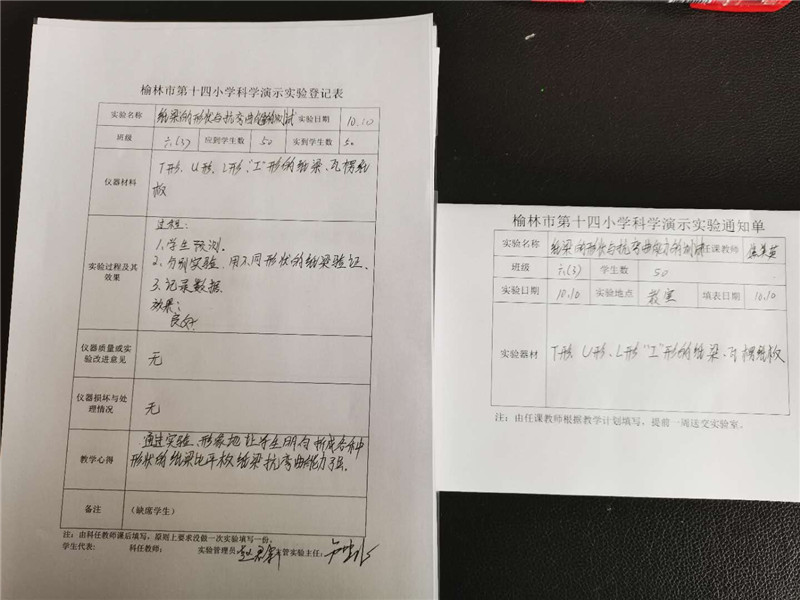 榆林市第十四小学科学演示实验登记表
实验名称 纸梁的形状与抗弯曲能力的测试 实验日期 10.10
班级 六(3) 应到学生数 50 实到学生数 50
仪器材料 T形、U形、L形、"工"形的纸梁、瓦楞纸
板
过程:
1.学生预测.
实验过程及其
效果
2.分别实验.用不同形状的纸梁验证.
3.记录数据.
效果:
良好.
仪器质量或实
验改进意见 无
仪器损坏与处
理情况 无
教学心得 通过实验.形象地让学生明白折成各种
形状的纸梁比平板纸梁抗弯曲能力强。
备注 (缺席学生)
注:由科任教师课后填写,原则上要求没做一次实验填写一份。
学生代表: 科任教师: 实验管理员: 管实验主任:
榆林市第十四小学科学演示实验通知单
实验名称 纸梁的形状与抗弯曲能力的测试 任课教师
班级 六(3) 学生数 50
实验日期 10.10 实验地点 教室 填表日期 10.10
实验器材 T形、U形、L形"工"形的纸梁、瓦楞纸板
注:由任课教师根据教学计划填写,提前一周送交实验室。